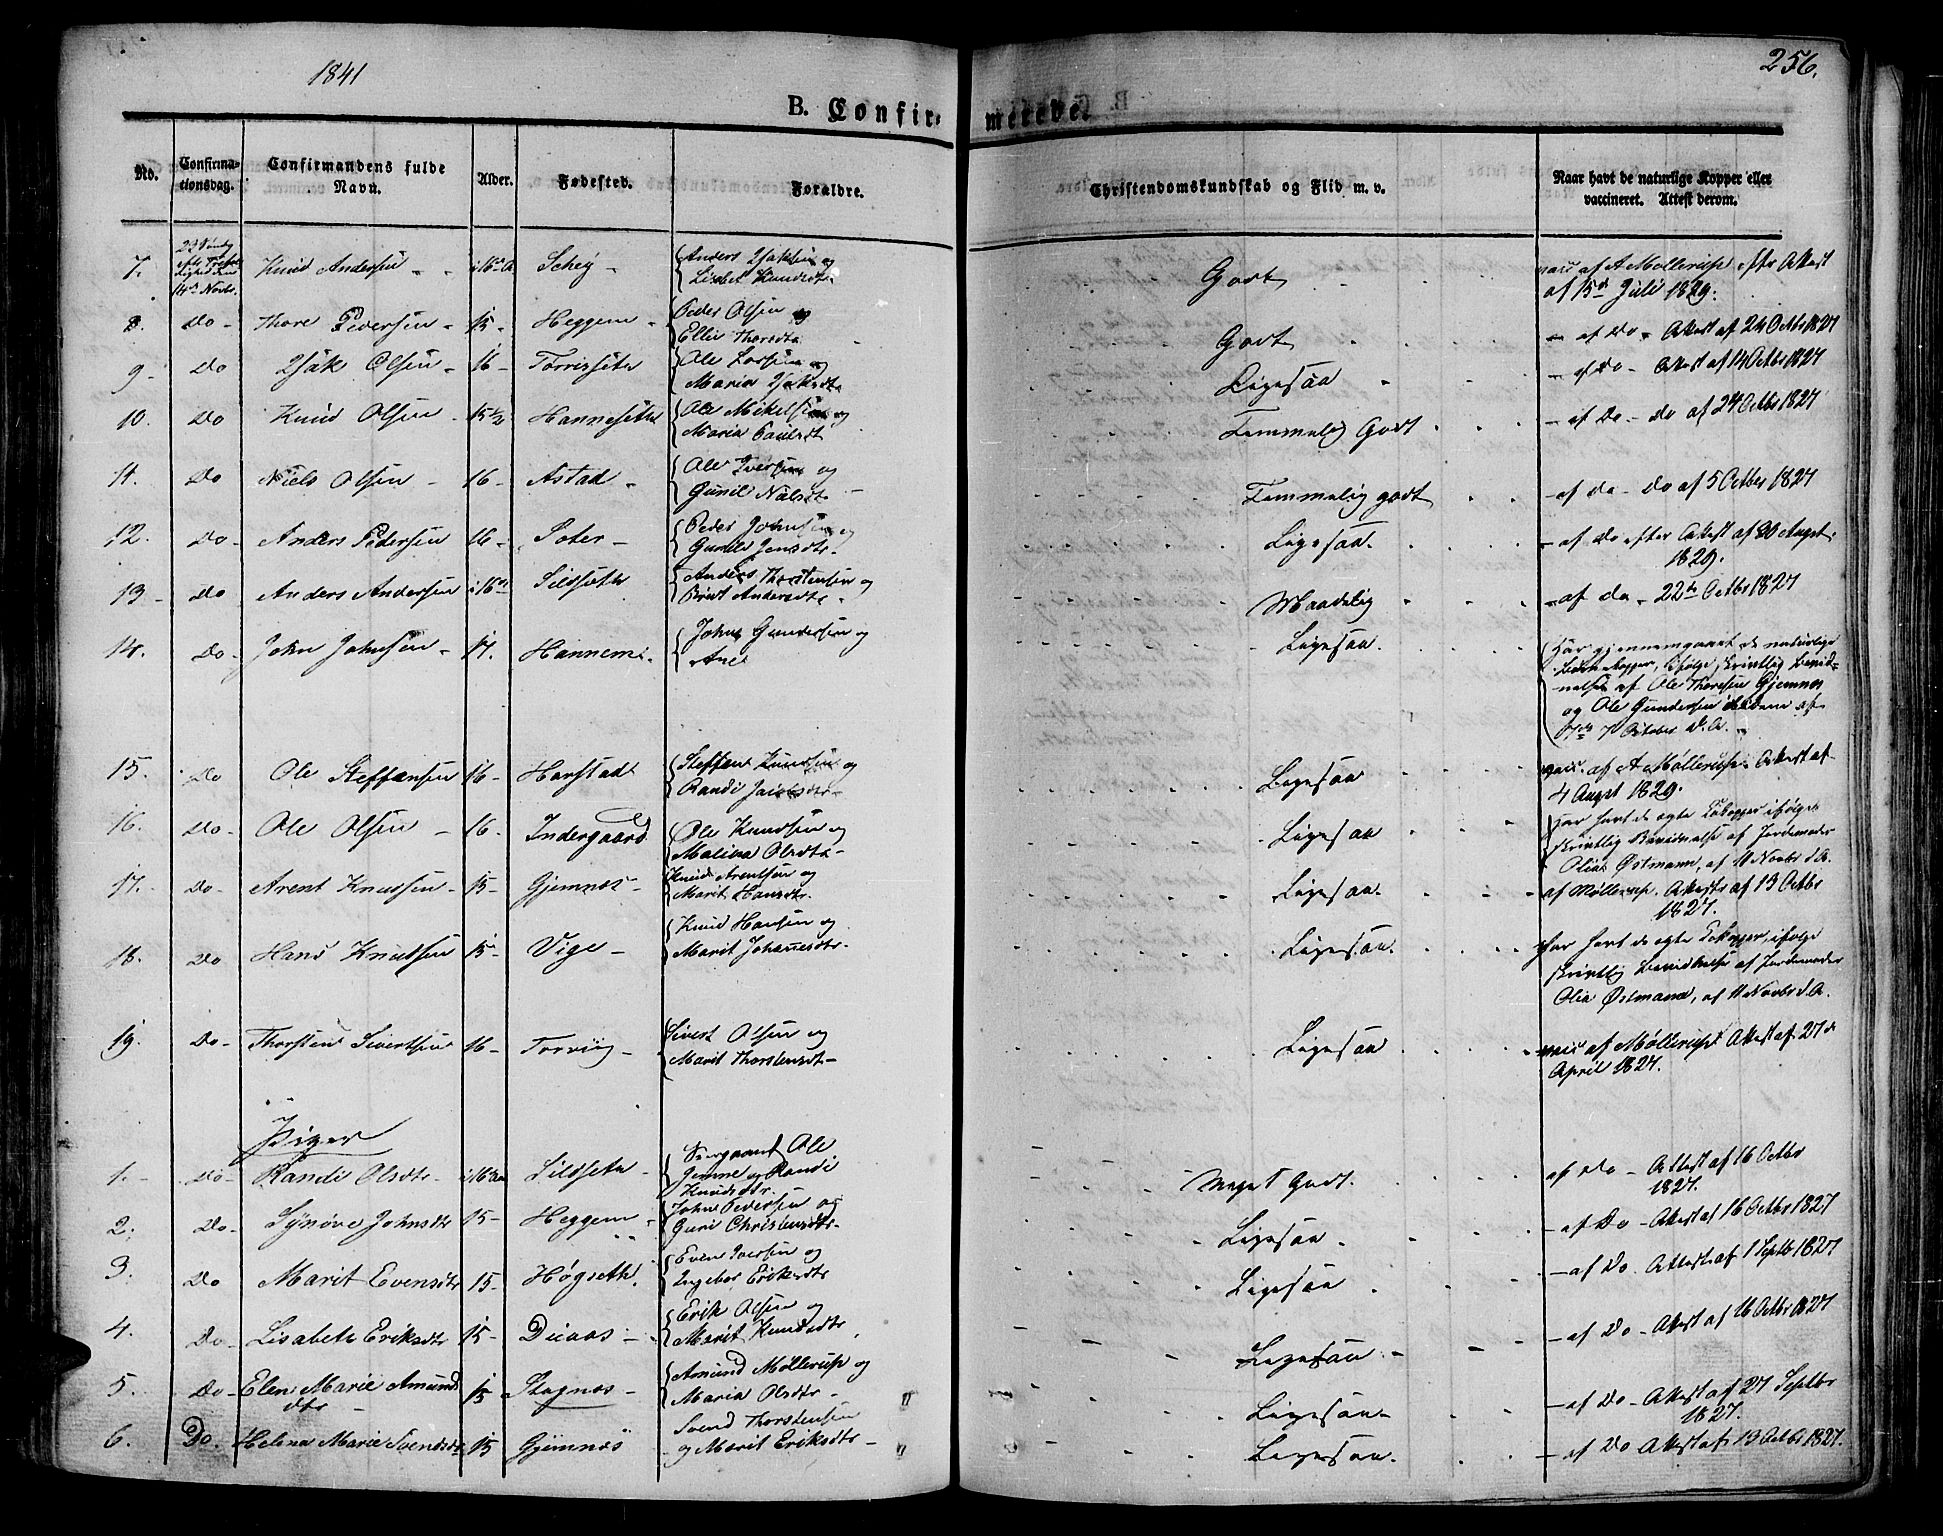 1841
256.
B. Confirmerede.
No. Confirmationsdag. Confirmandens fulde Navn. Alder. Fødested. Forældre. Christendomskundskab og Flid m. v. Naar havt de naturlige Kopper eller vaccineret. Attest derom.
7. 14de Novbr. Knud Andersen - - 16 Schey - Anders Isaksen og Lisbet Knudsdtr. Godt vacc af A Møllerup eftr Attest af 15de Juli 1829.
8. Do - Thore Pedersen - 15 - Heggem - Peder Olsen og Ellie Thorsdtr Godt - af Do - Attest af 24 Octbr 1827
9 - Do Isak Olsen - 16 - Torrisseter Ole Larsen og Maria Isaksdtr Ligesaa - af Do - Attest af 14 Octbr 1827
10. Do Knud Olsen - 15½ Hanneseth Ole Mikelsen og Maria Paulsdt Temmelig Godt - af Do - Do af 24 Octbr 1827
11. Do Niels Olsen - 16 - Astad - Ole Iversen og Gunil Nilsdtr Temmelig godt - af do - Do af 5 Octber 1827
12. Do - Anders Pedersen 16 - Soter - Peder Johnsen og Gunild Jensdtr. Ligesaa. - af Do efter Attest af 30 August 1829.
13 - Do Anders Andersen 16 Sildseth Anders Thorstensen og Brit Andersdtr - Maadelig - af do - 22de Octbr 1827
14. Do - John Johnsen - 17. Hannem - John Gundersen og Ane Ligesaa. Har gjennemgaaet de naturlige Kopper, ifølge skriftlig Bevidnelse af Ole Thoresen Gjemnes og Ole Gundersen af 7 October d. A.
15. Do Ole Steffensen 16 - Harstad Steffen Knudsen og Randi Ligesaa vacc. af A Møllerup Attest af 4 August 1829.
16. Do - Ole Olsen - 16. Indergaard Ole Knudsen og Malina Olsdtr - Ligesaa Har havt de ægte Kokopper ifølge skriftlig Bevidnelse af Jordemoder Olia Østmann, af 11 Novbr d. A.
17. - Do - Arent Knudsen - 15 - Gjemnæs - Knud Arentsen og Marit Hansdtr. Ligesaa. af Møllerup. Attest af 13 Octbr 1827.
18. Do Hans Knudsen 15 - Vige - Knud Hansen og Marit Johannesdtr - Ligesaa. Har havt de ægte Kokopper, ifølge skriftlig Bevidnelse af Jordemoder Olia Østmann, af 11 Novbr d. A.
19. Do - Thorsten Sivertsen 16 - Torvig - Sivert Olsen og Marit Thorstensdtr - Ligesaa vacc af Møllerup Attest af 27de April 1827.
Piger
1. - Do - Randi Olsdtr - 16 Sildseth - Sergeant Ole Gemne og Randi Knudsdtr. Meget Godt. af Do - Attest af 16 Octbr 1827.
2. Do - Synøve Johnsdtr 15 - Heggem - John Pedersen og Guri Christensdtr - Ligesaa - - af Do - Attest af 16 Octbr 1827
3. Do Marit Evensdtr 15 - Høgseth. Even Iversen og Ingebor Eriksdtr Ligesaa - af Do. Attest af 1 Septbr 1827
4. Do - Lisabeth Eriksdtr 15 - Diaas - Erik Olsen og Marit Knudsdtr Ligesaa. - af Do - Attest af 16 Octbr 1827
5. Do - Elen Marie Amundsdtr - 15 Stagnæs - Amund Møllerup og Maria Olsdtr - Ligesaa - - af Do - Attest af 27 Septbr 1827.
6. Do. Helena Marie Svendsdtr 15 Gjemnæs Svend Thorstensen og Marit Eriksdtr - Ligesaa. - af Do Attest af 13 Octbr 1827.